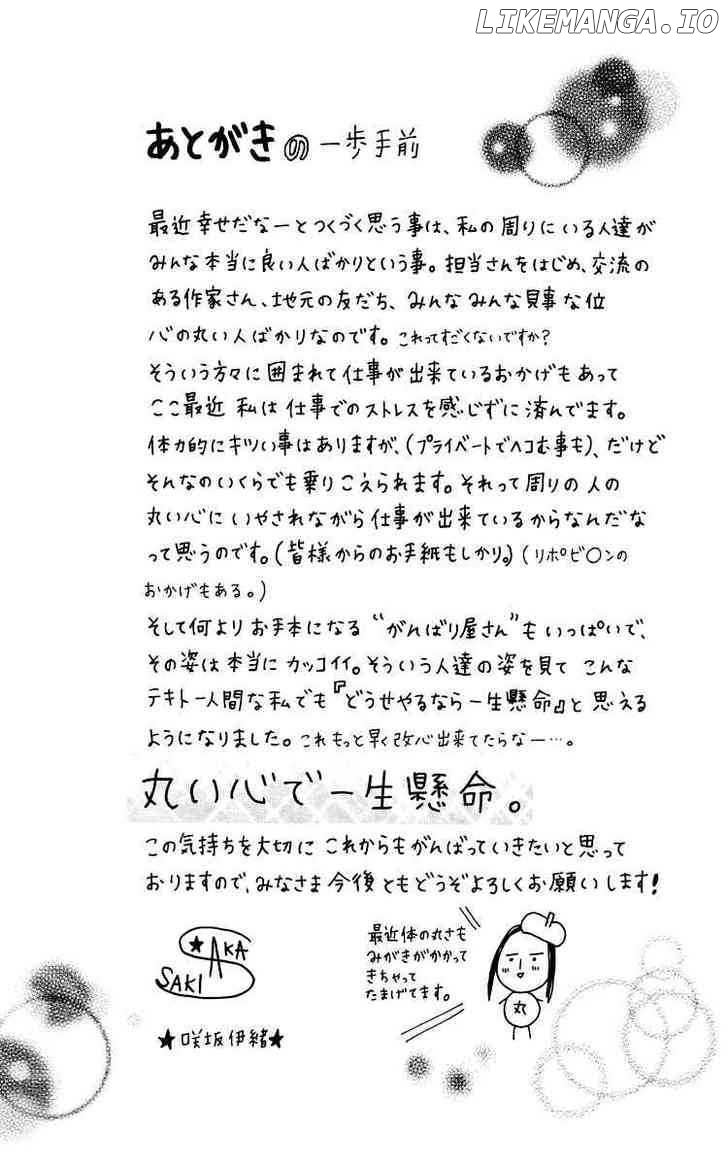 LIKEMANGA.IO
あとがきの一歩手前
最近幸せだなーとつくづく思う事は、私の周りにいる人達が
みんな本当に良い人ばかりという事。担当さんをはじめ、交流の
ある作家さん、地元の友だち、みんなみんな見事な位
心の丸い人ばかりなのです。これってすごくないですか?
そういう方々に囲まれて仕事が出来ているおかげもあって
ここ最近 私は仕事でのストレスを感じずに済んでます。
体力的にキツい事はありますが、(プライベートでヘコむ事も)、だけど
そんなのいくらでも乗りこえられます。それって周りの人の
丸い心にいやされながら仕事が出来ているからなんだな
って思うのです。(皆様からのお手紙もしかり。)(リポビ〇ンの
おかげもある。)
そして何よりお手本になる“がんばり屋さん”もいっぱいで、
その姿は本当にカッコイイ。そういう人達の姿を見て こんな
テキトー人間な私でも『どうせやるなら一生懸命』と思える
ようになりました。これもっと早く改心出来てたらなー…。
丸い心で一生懸命。
この気持ちを大切に これからもがんばっていきたいと思って
おりますので、みなさま今後ともどうぞよろしくお願いします!
★AKA
SAKI
SAKA
★咲坂伊緒★
最近体の丸さも
みがきがかかって
きちゃって
たまげてます。
丸